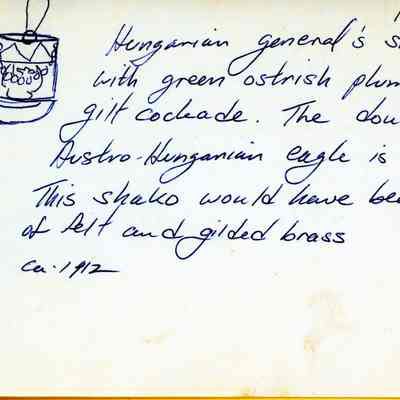 Hungarian general's s
with green ostrish plum
gilt cockade. The dou
Austro-Hungarian eagle is
This shako would have be
of felt and gilded brass
ca. 1912